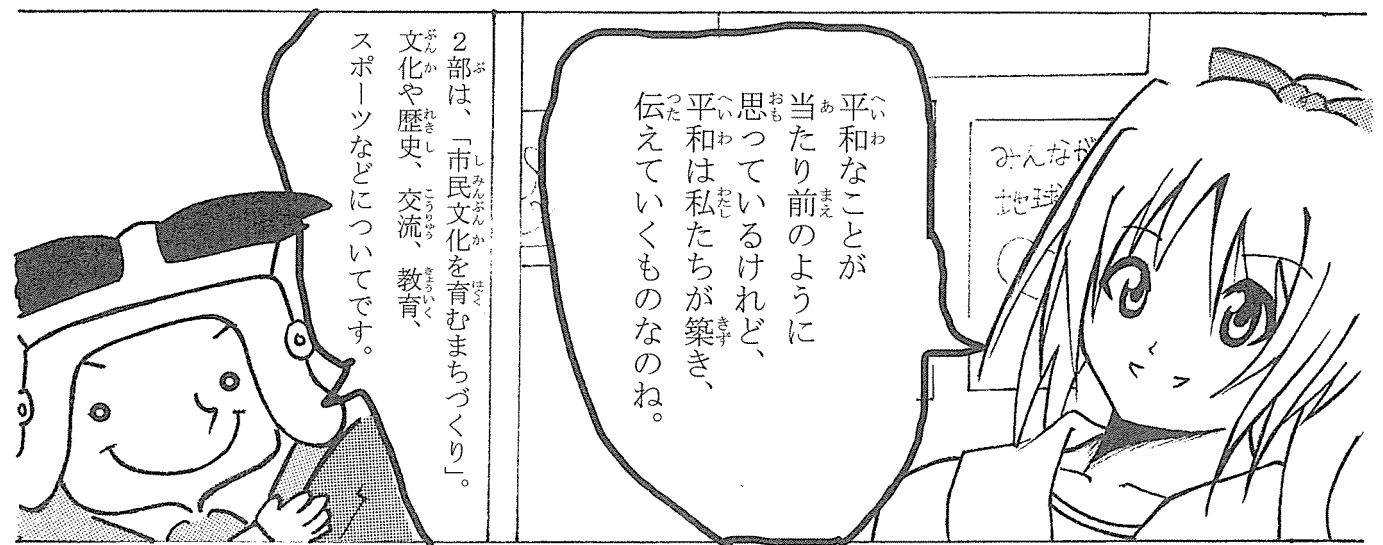 平和なことが
当たり前のように
思っているけれど、
平和は私たちが築き、
伝えていくものなのね。
みんなが
地球
2部は、「市民文化を育むまちづくり」。
文化や歴史、交流、教育、
スポーツなどについてです。